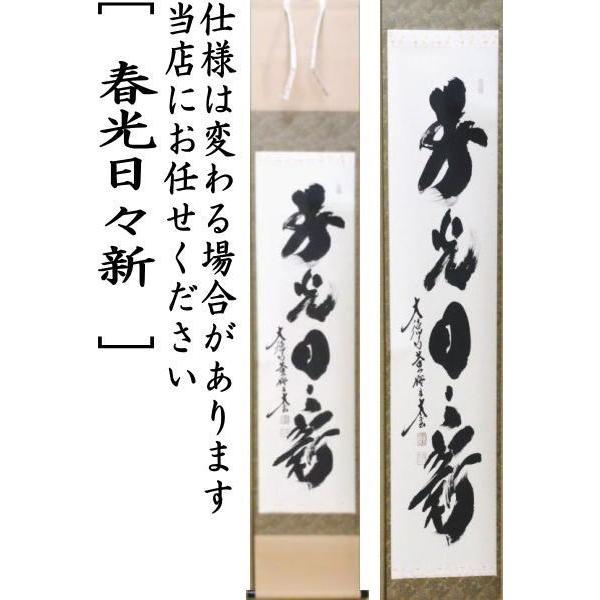 仕様は変わる場合があります
当店にお任せください
[ 春光日々新 ]
春光日々新
春光日々新